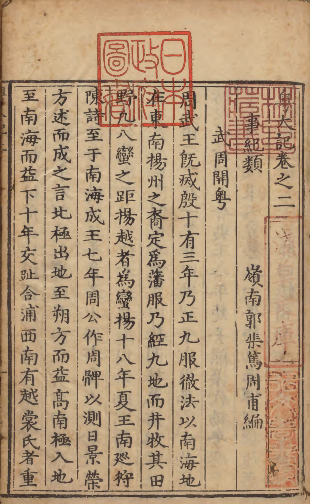 粵大記卷之二
事紀類
嶺南郭棐篤周甫編
武周開粵
周武王既烕殷十有三年乃正九服徹法以南海地
在東南揚州之裔定為藩服乃經九地而井牧其田
野九八蠻之距揚越者為蠻揚十八年夏王南廵狩
陳詩至于南海成王七年周公作周髀以測日景榮
方述而成之言北極出地至朔方而益髙南極入地
至南海而益下十年交趾合浦西南有越裳氏者重
日本
政府
圖書